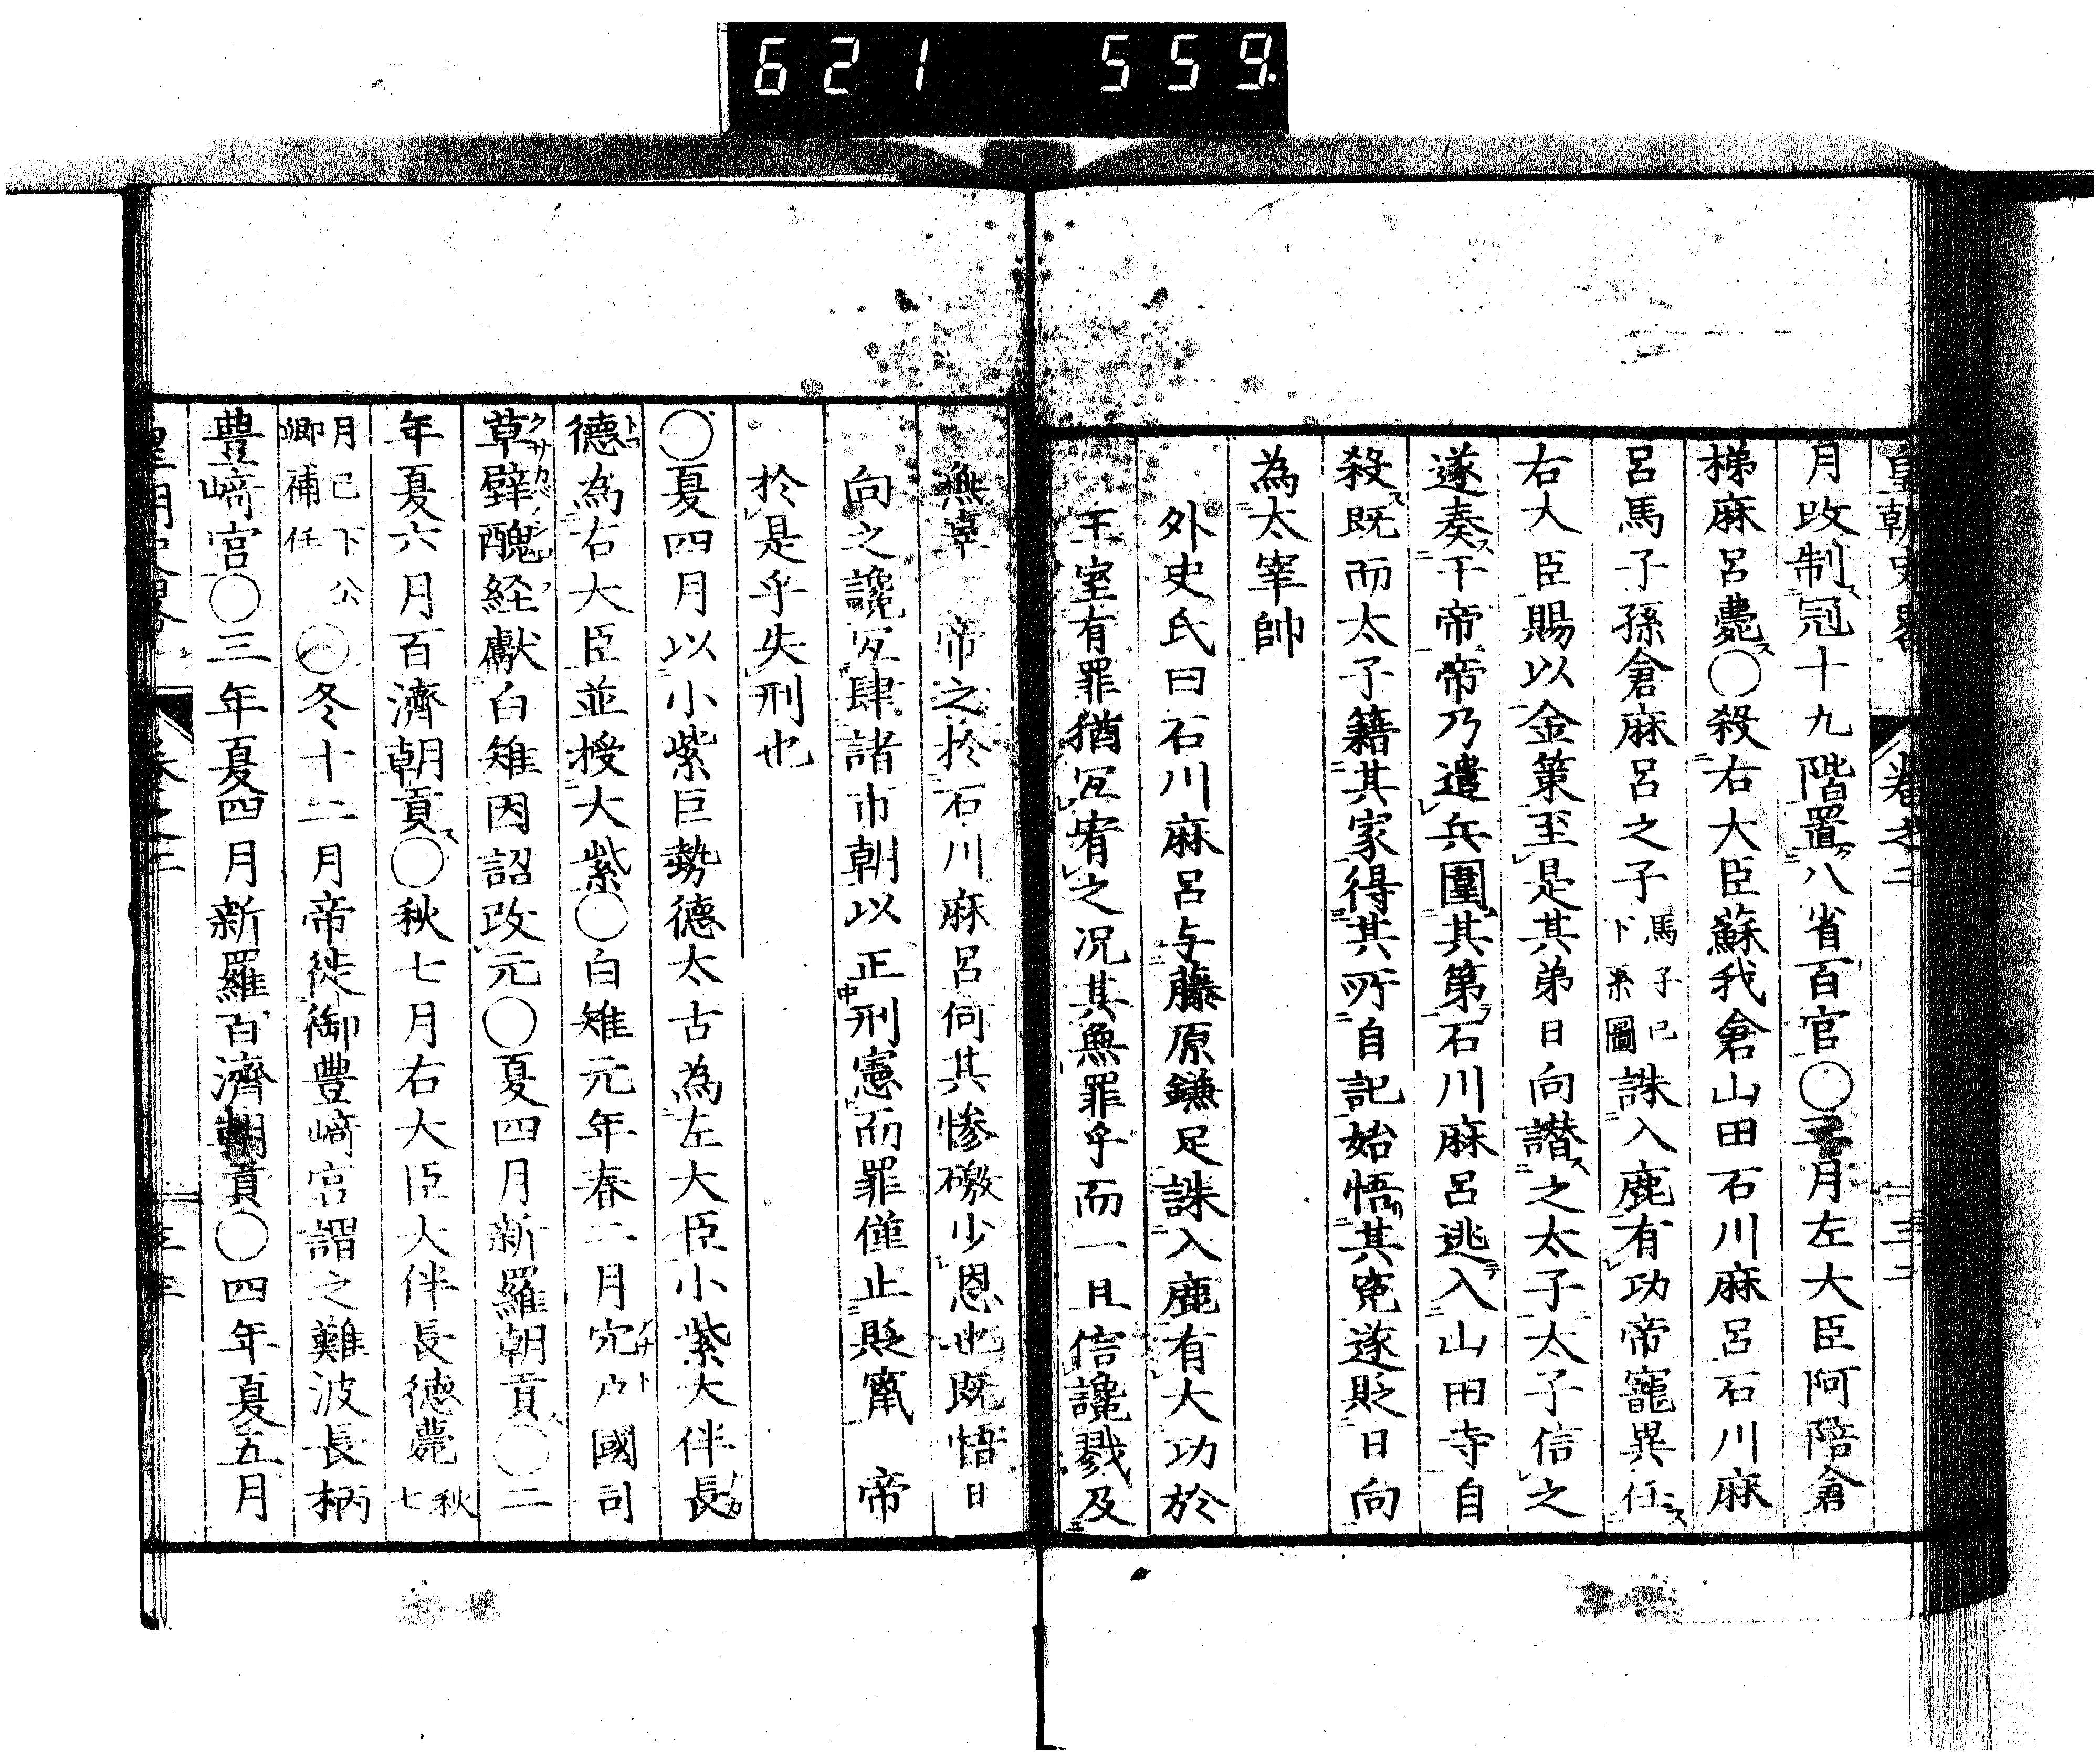 621 559
皇朝史畧 卷之二 三二
月改制冠十九階置八省百官〇三月左大臣阿陪倉
梯麻呂薨〇殺右大臣蘇我倉山田石川麻呂石川麻
呂馬子孫倉麻呂之子馬子已下系圖誅入鹿有功帝寵異任
右大臣賜以金策至是其弟日向譖之太子太子信之
遂奏于帝帝乃遣兵圍其第石川麻呂逃入山田寺自
殺既而太子籍其家得其所自記始悟其寃遂貶日向
為太宰帥
外史氏曰石川麻呂与藤原鎌足誅入鹿有大功於
王室有罪猶宜宥之况其無罪乎而一旦信讒戮及
無辜 帝之於石川麻呂何其惨礉少恩也既悟日
向之讒宜肆諸市朝以正刑憲而罪僅止貶竄 帝
於是乎失刑也
〇夏四月以小紫巨勢德太古為左大臣小紫大伴長
德為右大臣並授大紫〇白雉元年春二月宍户國司
草壁醜経獻白雉因詔改元〇夏四月新羅朝貢〇二
年夏六月百濟朝貢〇秋七月右大臣大伴長德薨秋七
月已下公卿補任〇冬十二月帝徙御豊﨑宮謂之難波長柄
豊﨑宮〇三年夏四月新羅百濟朝貢〇四年夏五月
皇朝史畧 卷之二 三三